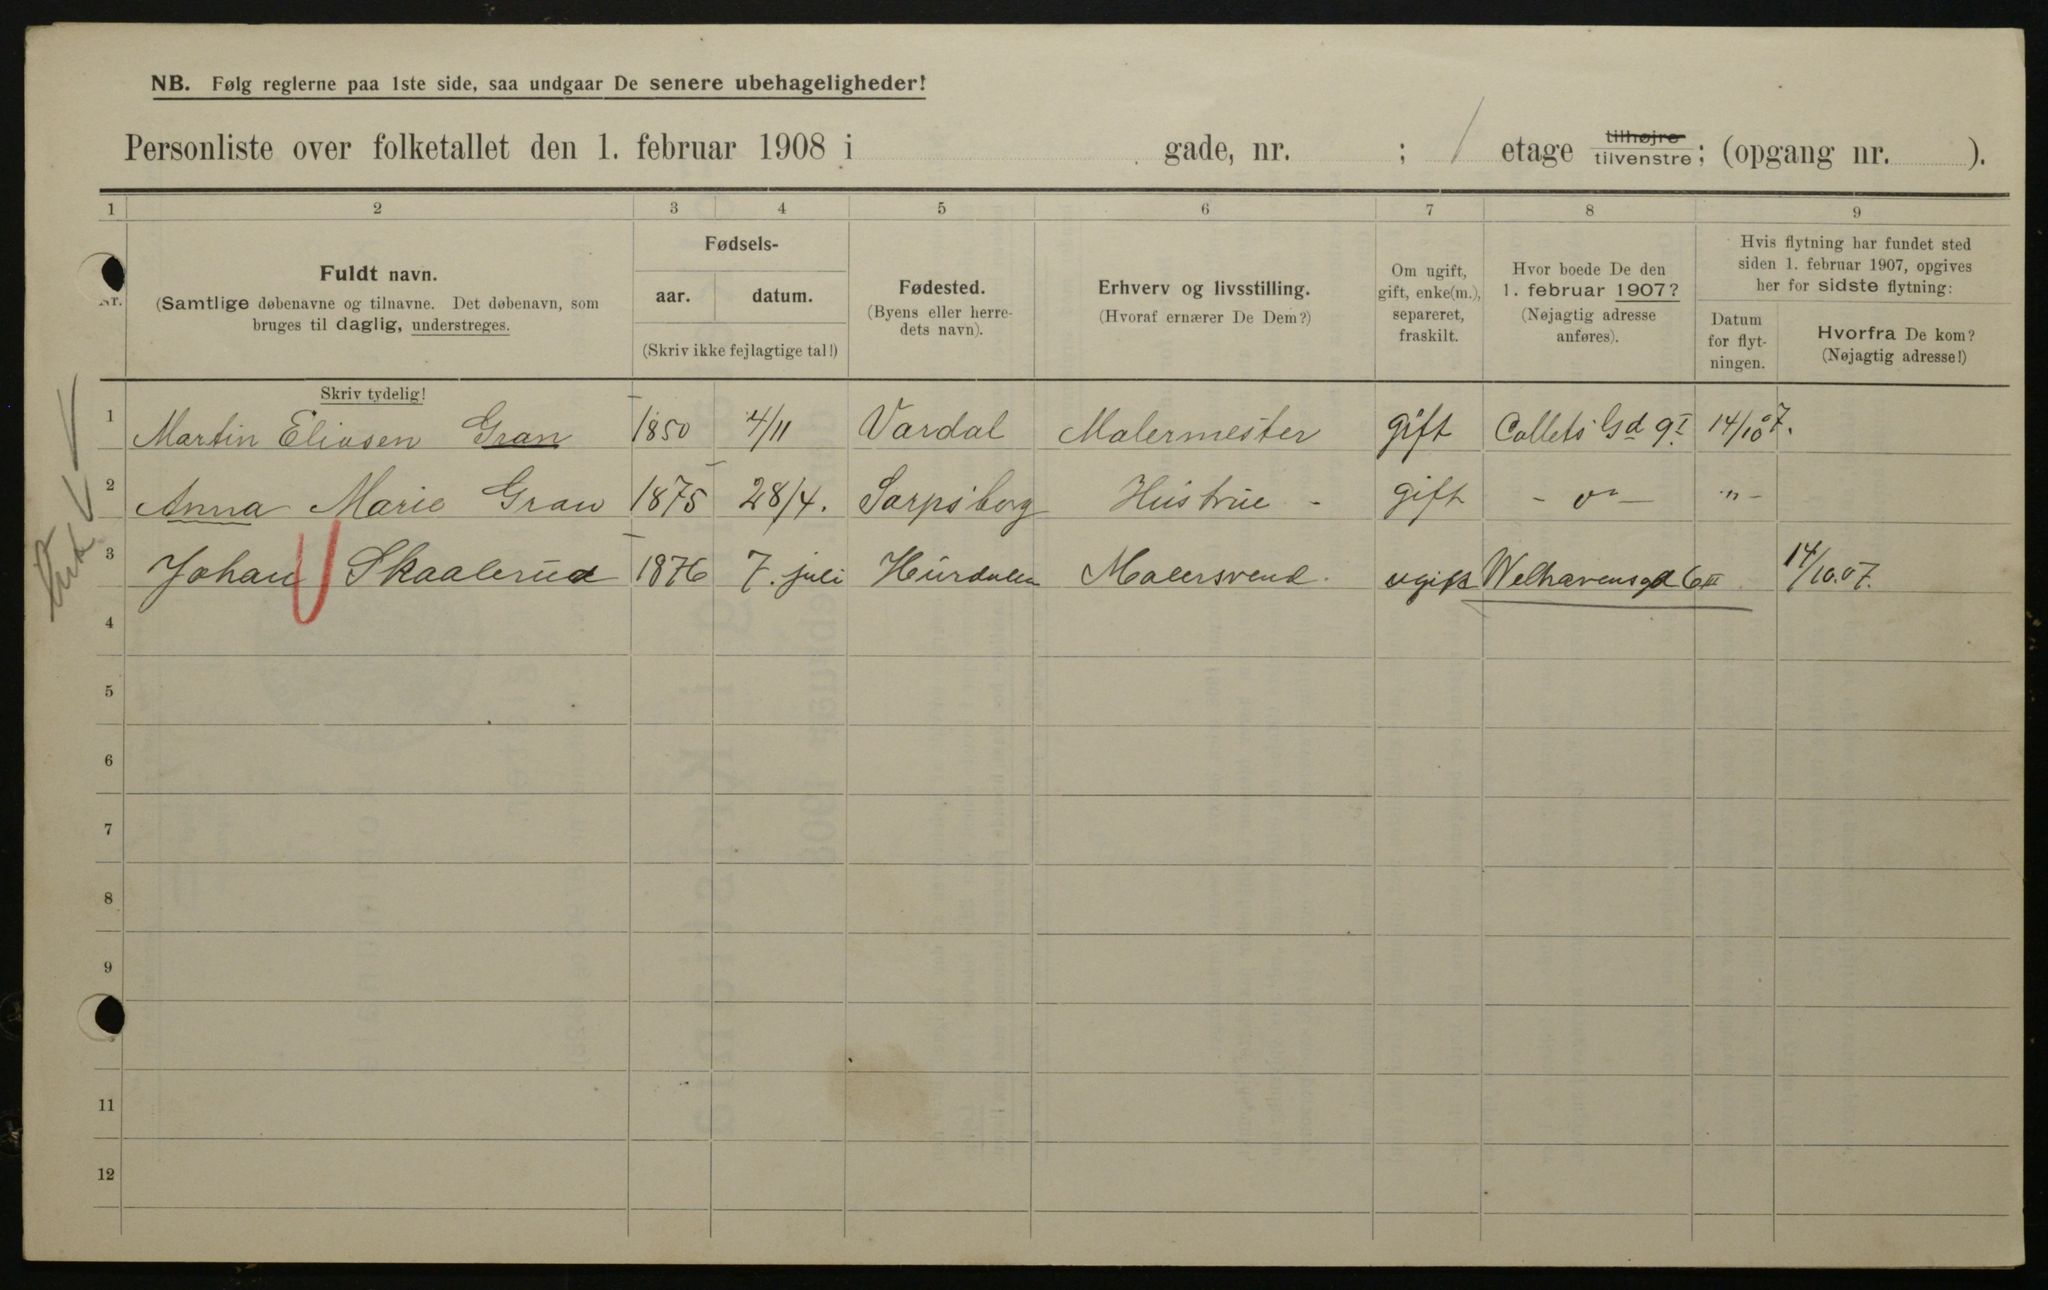 NB. Følg reglerne paa 1ste side, saa undgaar De senere ubehageligheder!
Personliste over folketallet den 1. februar 1908 i gade, nr. ; 1 etage tilhøjre tilvenstre; (opgang nr. ).
1 2 3 4 5 6 7 8 9
Nr.
Fuldt navn.
(Samtlige døbenavne og tilnavne. Det døbenavn, som
bruges til daglig, understreges.
Fødsels-
aar. datum.
(Skriv ikke fejlagtige tal!)
Fødested.
(Byens eller herre-
dets navn).
Erhverv og livsstilling.
(Hvoraf ernærer De Dem?)
Om ugift,
gift, enke(m.),
separeret,
fraskilt.
Hvor boede De den
1. februar 1907?
(Nøjagtig adresse
anføres).
Hvis flytning har fundet sted
siden 1. februar 1907, opgives
her for sidste flytning:
Datum
for flyt-
ningen.
Hvorfra De kom?
(Nøjagtig adresse!)
Skriv tydelig!
1 Martin Eliasen Gran 1850 4/11 Vardal Malermester gift Collets Gd 9 I 14/10 07.
2 Anna Marie Gran 1875 28/4. Sarpsborg Hustrue - gift - o - - " -
3 Johan Skaalerud 1876 7. juli Hurdalen Malersvend. ugift Welhavensgd 6 III 14/10.07.
4
5
6
7
8
9
11
12